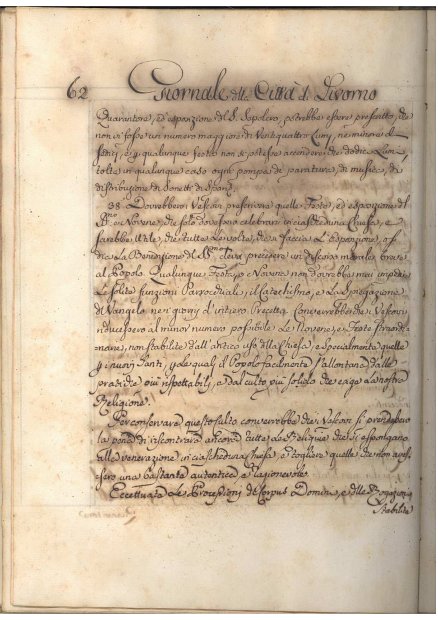 62 Giornale della Città di Livorno
Quarantore, ed esposizione del S. Sepolcro, potrebbe essere prescritto, che
non vi fosse un numero maggiore di Ventiquattro Lumi, nè minore di
Sedici, e p. qualunque festa non si potesse accendere, che dodici Lumi
tolta in qualunque caso ogni pompa di paratura, di musica, di
distribuzione di Sonetti, di Spari.
38. Dovrebbero i Vescovi prescrivere quelle Feste, ed esposizioni del
SS.mo in Novene, che solo dovessero celebrarsi in ciascheduna Chiesa, e
sarebbe Utile, che tutte le volte, che si faccia L'Esposizione, o si
dia La Benedizione del SS.mo deva precedere un discorso morale, e breve
al Popolo. Qualunque Festa, o Novena non dovrebbe mai impedire
Le solite funzioni Parrocchiali, il Catechismo, e La Spiegazione
di Vangelo, nei giorni d'intiero Precetto. Converrebbe che i Vescovi
riducessero al minor numero possibile Le Novene, e Feste straordi-
narie, non stabilite dall'antico uso della Chiesa, e Specialmente quelle
p. i nuovi Santi, p. le quali il Popolo facilmente s'allontana dalle
pratiche più rispettabili, e dal culto più solido che esige La nostra
Religione.
Per conservare questo culto converrebbe che i Vescovi si prendessero
la pena di riscontrare ancora tutte Le Reliquie, che si espongano
alla venerazione in ciascheduna Chiesa, e togliere quelle che non aves-
sero una bastante autentica, e Ragionevole.
Eccettuate Le Processioni di Corpus Domini, e delle Rogazioni
Stabilite